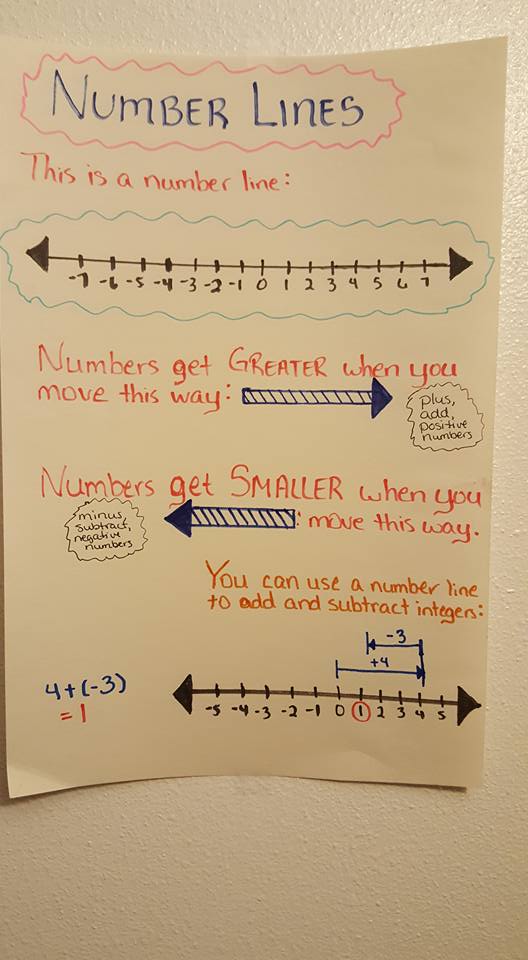 NUMBER LINES
This is a number line:
-7 -6 -5 -4 -3 -2 -1 0 1 2 3 4 5 6 7
Numbers get GREATER when you
move this way:
plus,
add,
positive
numbers
Numbers get SMALLER when you
minus,
subtract,
negative
numbers
: move this way.
You can use a number line
to add and subtract integers:
-3
+4
4+(-3)
= 1
-5 -4 -3 -2 -1 0 1 2 3 4 5